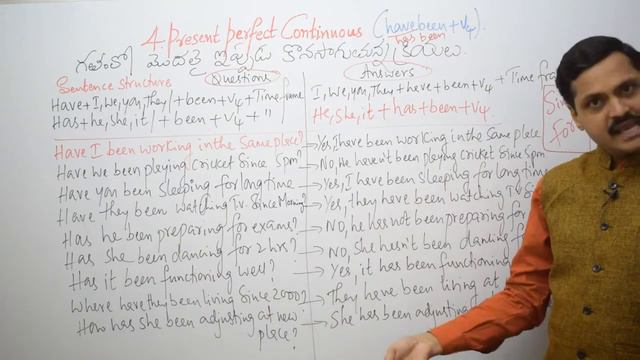 4. Present perfect Continuous (have been + v4)
has been
గతంలో మొదలై ఇప్పుడు కొనసాగుతున్న క్రియలు.
Sentence Structure Questions Answers
Have + I, we, you, they / + been + v4 + Time frame
I, we, you, They + have + been + v4 + Time fra
Has + he, she, it / + been + v4 + "
He, She, it + has + been + v4.
Sin
for
Have I been working in the Same place? → Yes, I have been working in the Same place
Have we been pleying cricket Since 5pm? → No, He haven't been pleying cricket Since 5pm
Have you been Sleeping for long time → Yes, I have been sleeping for long time
Have they been watching Tv. Since Morning? → Yes, they have been watching Tv S
Has he been preparing for exams? → No, he has not been preparing for
Has she been dancing for 2 hrs? → No, She hasn't been dancing f
Has it been functioning well? → Yes, it has been functioning
Where have they been living Since 2000? → They have been living at
How has She been adjusting at new place? → She has been adjusting